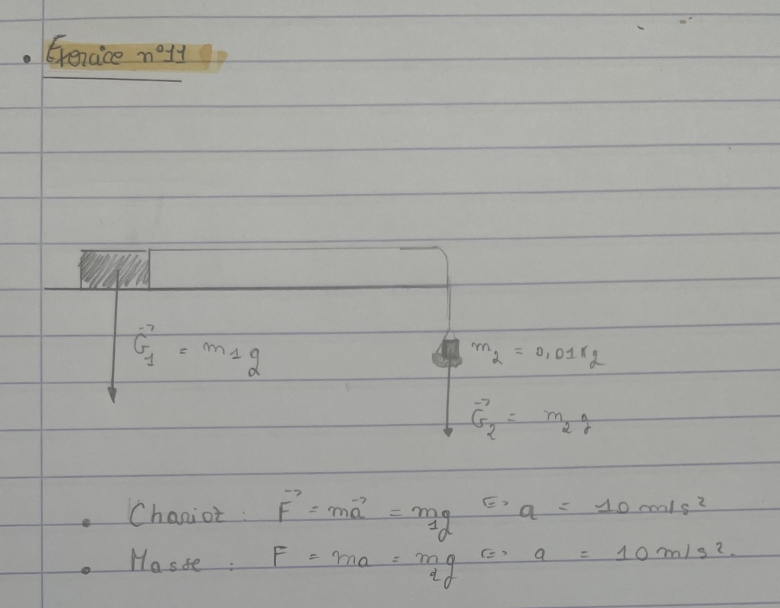 • Exercice n°11
G⃗₁ = m₁g
m₂ = 0,01kg
G⃗₂ = m₂g
• Chariot : F⃗ = ma⃗ = m₁g <=> a = 10 m/s²
• Masse : F = ma = m₂g <=> a = 10 m/s².